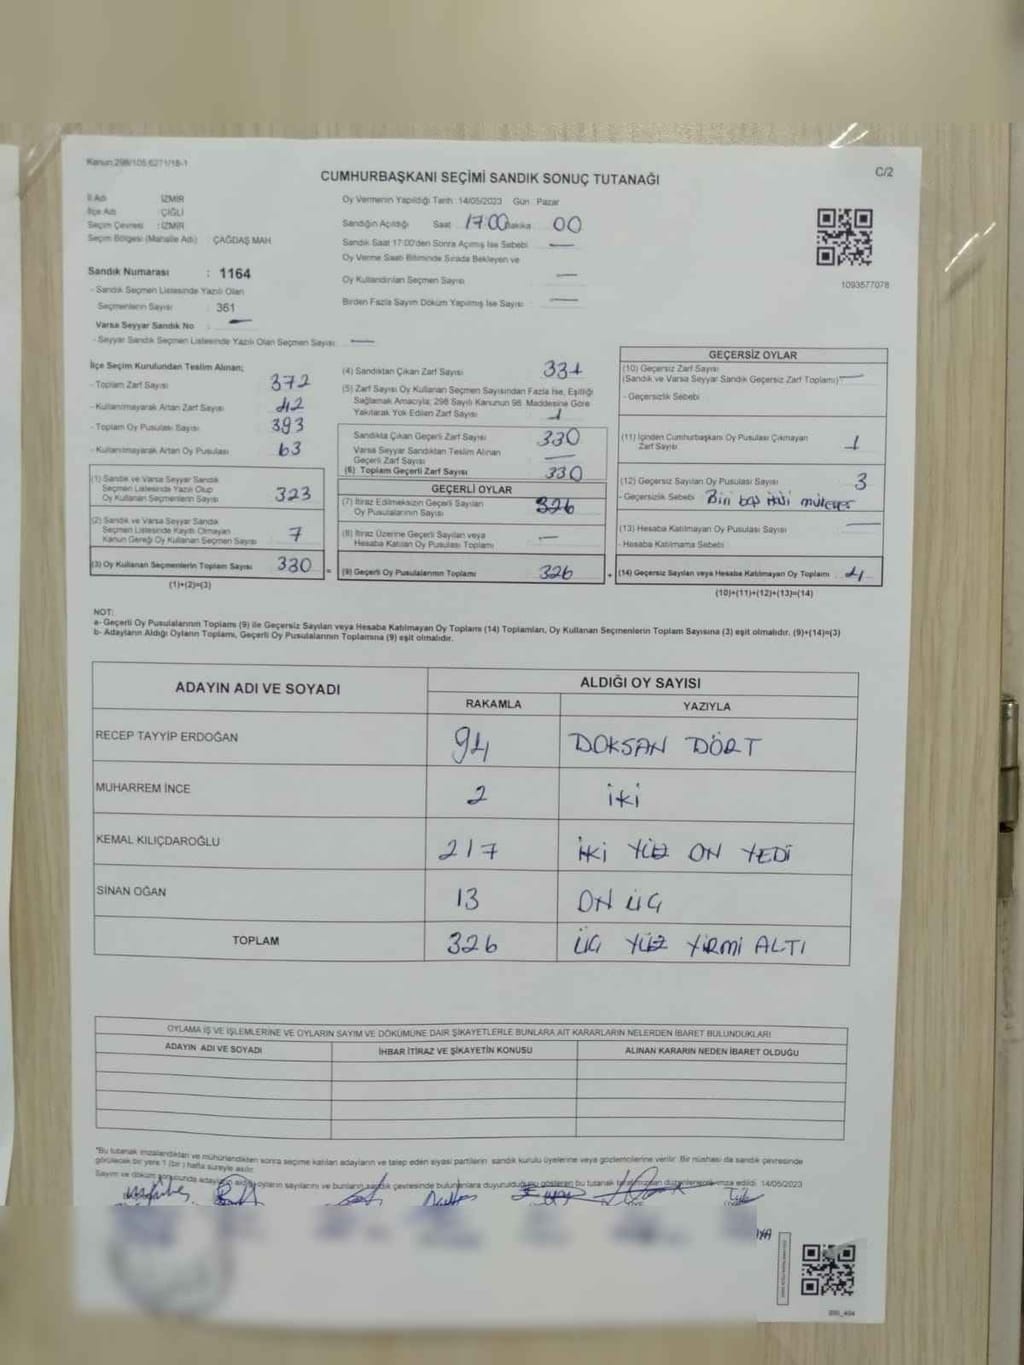 Kanun:298/105,6271/18-1
C/2
CUMHURBAŞKANI SEÇİMİ SANDIK SONUÇ TUTANAĞI
İl Adı : İZMİR
İlçe Adı : ÇİĞLİ
Seçim Çevresi : İZMİR
Seçim Bölgesi (Mahalle Adı) ÇAĞDAŞ MAH
Sandık Numarası : 1164
- Sandık Seçmen Listesinde Yazılı Olan
Seçmenlerin Sayısı 361
Varsa Seyyar Sandık No : —
- Seyyar Sandık Seçmen Listesinde Yazılı Olan Seçmen Sayısı —
Oy Vermenin Yapıldığı Tarih :14/05/2023 Gün : Pazar
Sandığın Açıldığı Saat 17:00 Dakika 00
Sandık Saat 17:00'den Sonra Açılmış İse Sebebi —
Oy Verme Saati Bitiminde Sırada Bekleyen ve
Oy Kullandırılan Seçmen Sayısı —
Birden Fazla Sayım Döküm Yapılmış İse Sayısı —
1093577078
İlçe Seçim Kurulundan Teslim Alınan;
- Toplam Zarf Sayısı 372
- Kullanılmayarak Artan Zarf Sayısı 42
- Toplam Oy Pusulası Sayısı 393
- Kullanılmayarak Artan Oy Pusulası 63
(1) Sandık ve Varsa Seyyar Sandık
Seçmen Listesinde Yazılı Olup
Oy Kullanan Seçmenlerin Sayısı 323
(2) Sandık ve Varsa Seyyar Sandık
Seçmen Listesinde Kayıtlı Olmayan
Kanun Gereği Oy Kullanan Seçmen Sayısı 7
(3) Oy Kullanan Seçmenlerin Toplam Sayısı 330
(1)+(2)=(3)
(4) Sandıktan Çıkan Zarf Sayısı 331
(5) Zarf Sayısı Oy Kullanan Seçmen Sayısından Fazla İse, Eşitliği
Sağlamak Amacıyla; 298 Sayılı Kanunun 98. Maddesine Göre
Yakılarak Yok Edilen Zarf Sayısı 1
Sandıkta Çıkan Geçerli Zarf Sayısı 330
Varsa Seyyar Sandıktan Teslim Alınan
Geçerli Zarf Sayısı —
(6) Toplam Geçerli Zarf Sayısı 330
GEÇERLİ OYLAR
(7) İtiraz Edilmeksizin Geçerli Sayılan
Oy Pusulalarının Sayısı 326
(8) İtiraz Üzerine Geçerli Sayılan veya
Hesaba Katılan Oy Pusulası Toplamı —
= (9) Geçerli Oy Pusulalarının Toplamı 326
GEÇERSİZ OYLAR
(10) Geçersiz Zarf Sayısı
(Sandık ve Varsa Seyyar Sandık Geçersiz Zarf Toplamı) —
- Geçersizlik Sebebi
(11) İçinden Cumhurbaşkanı Oy Pusulası Çıkmayan
Zarf Sayısı 1
(12) Geçersiz Sayılan Oy Pusulası Sayısı 3
- Geçersizlik Sebebi Biri boş ikisi
(13) Hesaba Katılmayan Oy Pusulası Sayısı —
- Hesaba Katılmama Sebebi
+ (14) Geçersiz Sayılan veya Hesaba Katılmayan Oy Toplamı 4
(10)+(11)+(12)+(13)=(14)
NOT:
a- Geçerli Oy Pusulalarının Toplamı (9) ile Geçersiz Sayılan veya Hesaba Katılmayan Oy Toplamı (14) Toplamları, Oy Kullanan Seçmenlerin Toplam Sayısına (3) eşit olmalıdır. (9)+(14)=(3)
b- Adayların Aldığı Oyların Toplamı, Geçerli Oy Pusulalarının Toplamına (9) eşit olmalıdır.
ADAYIN ADI VE SOYADI ALDIĞI OY SAYISI
RAKAMLA YAZIYLA
RECEP TAYYİP ERDOĞAN 94 DOKSAN DÖRT
MUHARREM İNCE 2 İKİ
KEMAL KILIÇDAROĞLU 217 İKİ YÜZ ON YEDİ
SİNAN OĞAN 13 ON ÜÇ
TOPLAM 326 ÜÇ YÜZ YİRMİ ALTI
OYLAMA İŞ VE İŞLEMLERİNE VE OYLARIN SAYIM VE DÖKÜMÜNE DAİR ŞİKAYETLERLE BUNLARA AİT KARARLARIN NELERDEN İBARET BULUNDUKLARI
ADAYIN ADI VE SOYADI İHBAR İTİRAZ VE ŞİKAYETİN KONUSU ALINAN KARARIN NEDEN İBARET OLDUĞU
*Bu tutanak imzalandıktan ve mühürlendikten sonra seçime katılan adayların ve talep eden siyasi partilerin sandık kurulu üyelerine veya gözlemcilerine verilir. Bir nüshası da sandık çevresinde
görülecek bir yere 1 (bir) hafta süreyle asılır.
Sayım ve döküm sonucunda adayların aldığı oyların sayılarını ve bunların sandık çevresinde bulunanlara duyurulduğunu gösteren bu tutanak tarafımızdan düzenlenerek imza edildi. 14/05/2023